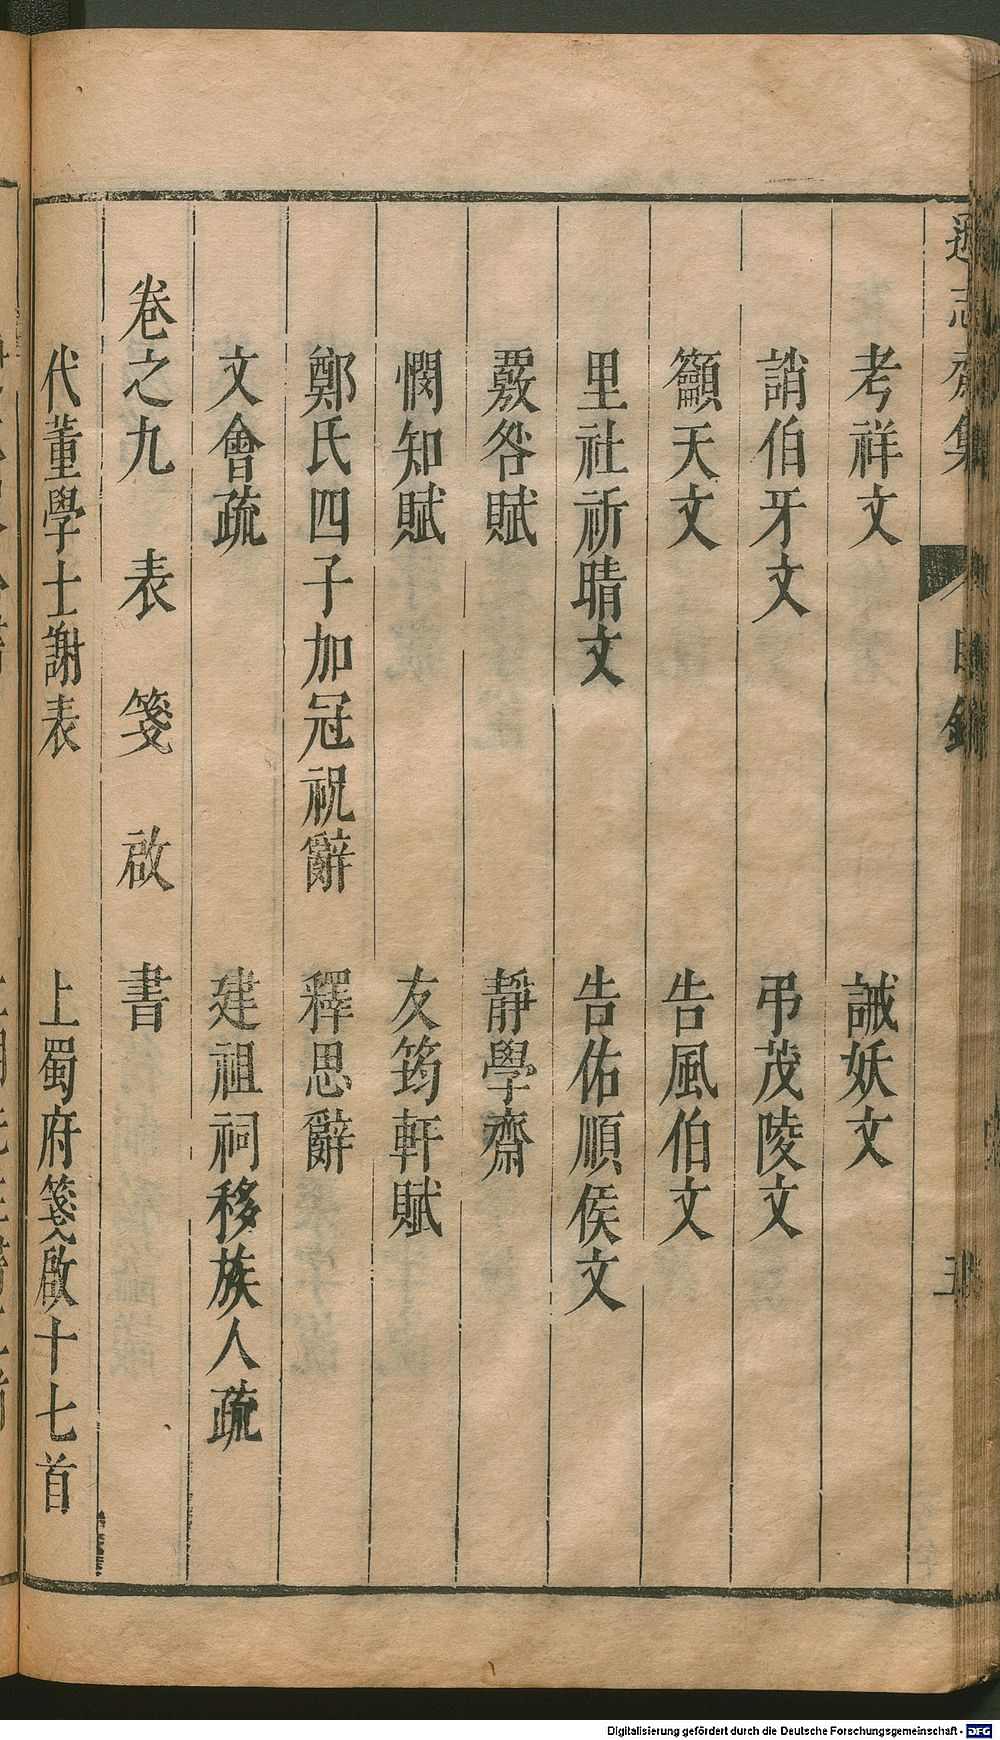 遜志齋集 目錄
考祥文 誡妖文
誚伯牙文 弔茂陵文
籲天文 告風伯文
里社祈晴文 告佑順侯文
覈咎賦 靜學齋
憫知賦 友筠軒賦
鄭氏四子加冠祝辭 釋思辭
文會疏 建祖祠移族人疏
卷之九 表 箋 啟 書
代董學士謝表 上蜀府箋啟十七首
Digitalisierung gefördert durch die Deutsche Forschungsgemeinschaft - DFG